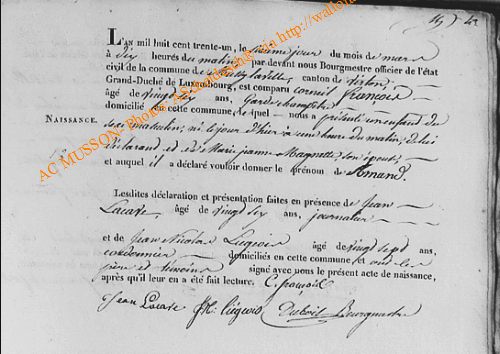 L'AN mil huit cent trente-un, le jour du mois de mars
à dix heures du matin par devant nous Bourgmestre officier de l'état
civil de la commune de canton de Virton
Grand-Duché de Luxembourg, est comparu Corneil François
âgé de vingt six ans, Garde champêtre
domicilié en cette commune, lequel nous a présenté un enfant de
NAISSANCE.
sexe masculin, né le jour d'hier à une heure du matin, de lui
déclarant et de Marie jeanne Magnette son épouse,
et auquel il a déclaré vouloir donner le prénom de Amand.
Lesdites déclaration et présentation faites en présence de Jean
Lacave âgé de vingt six ans, journalier
et de Jean Nicolas Liégeois âgé de vingt sept ans,
cordonnier domiciliés en cette commune et ont les
père et témoins signé avec nous le présent acte de naissance,
après qu'il leur en a été fait lecture. C. françois
Jean Lacave Liégeois Bourgmestre
AC MUSSON - Photos http://wallonia